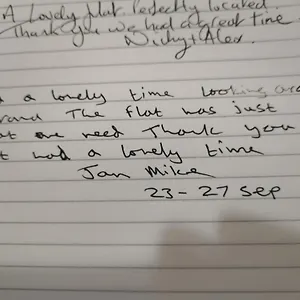 A Lovely flat. Perfectly located.
Thank you we had a great time
Nicky + Alex.
a lovely time looking
The flat was just
need Thank you
had a lovely time
Jan Mike
23 - 27 Sep